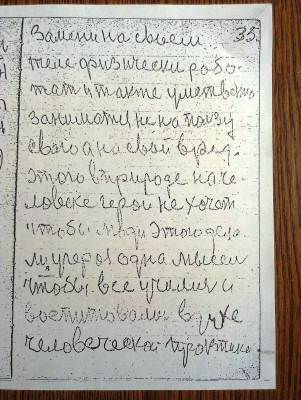 35.
Замени на своем
теле физически рабо-
тати также умственно
заниматися не на пользу
своего а на свой вред.
Этого в природе на че-
ловеке герои не хочет
чтобы люди этого дела
одна мысль
чтобы все учились и
воспитовались в духе
человеческой практике